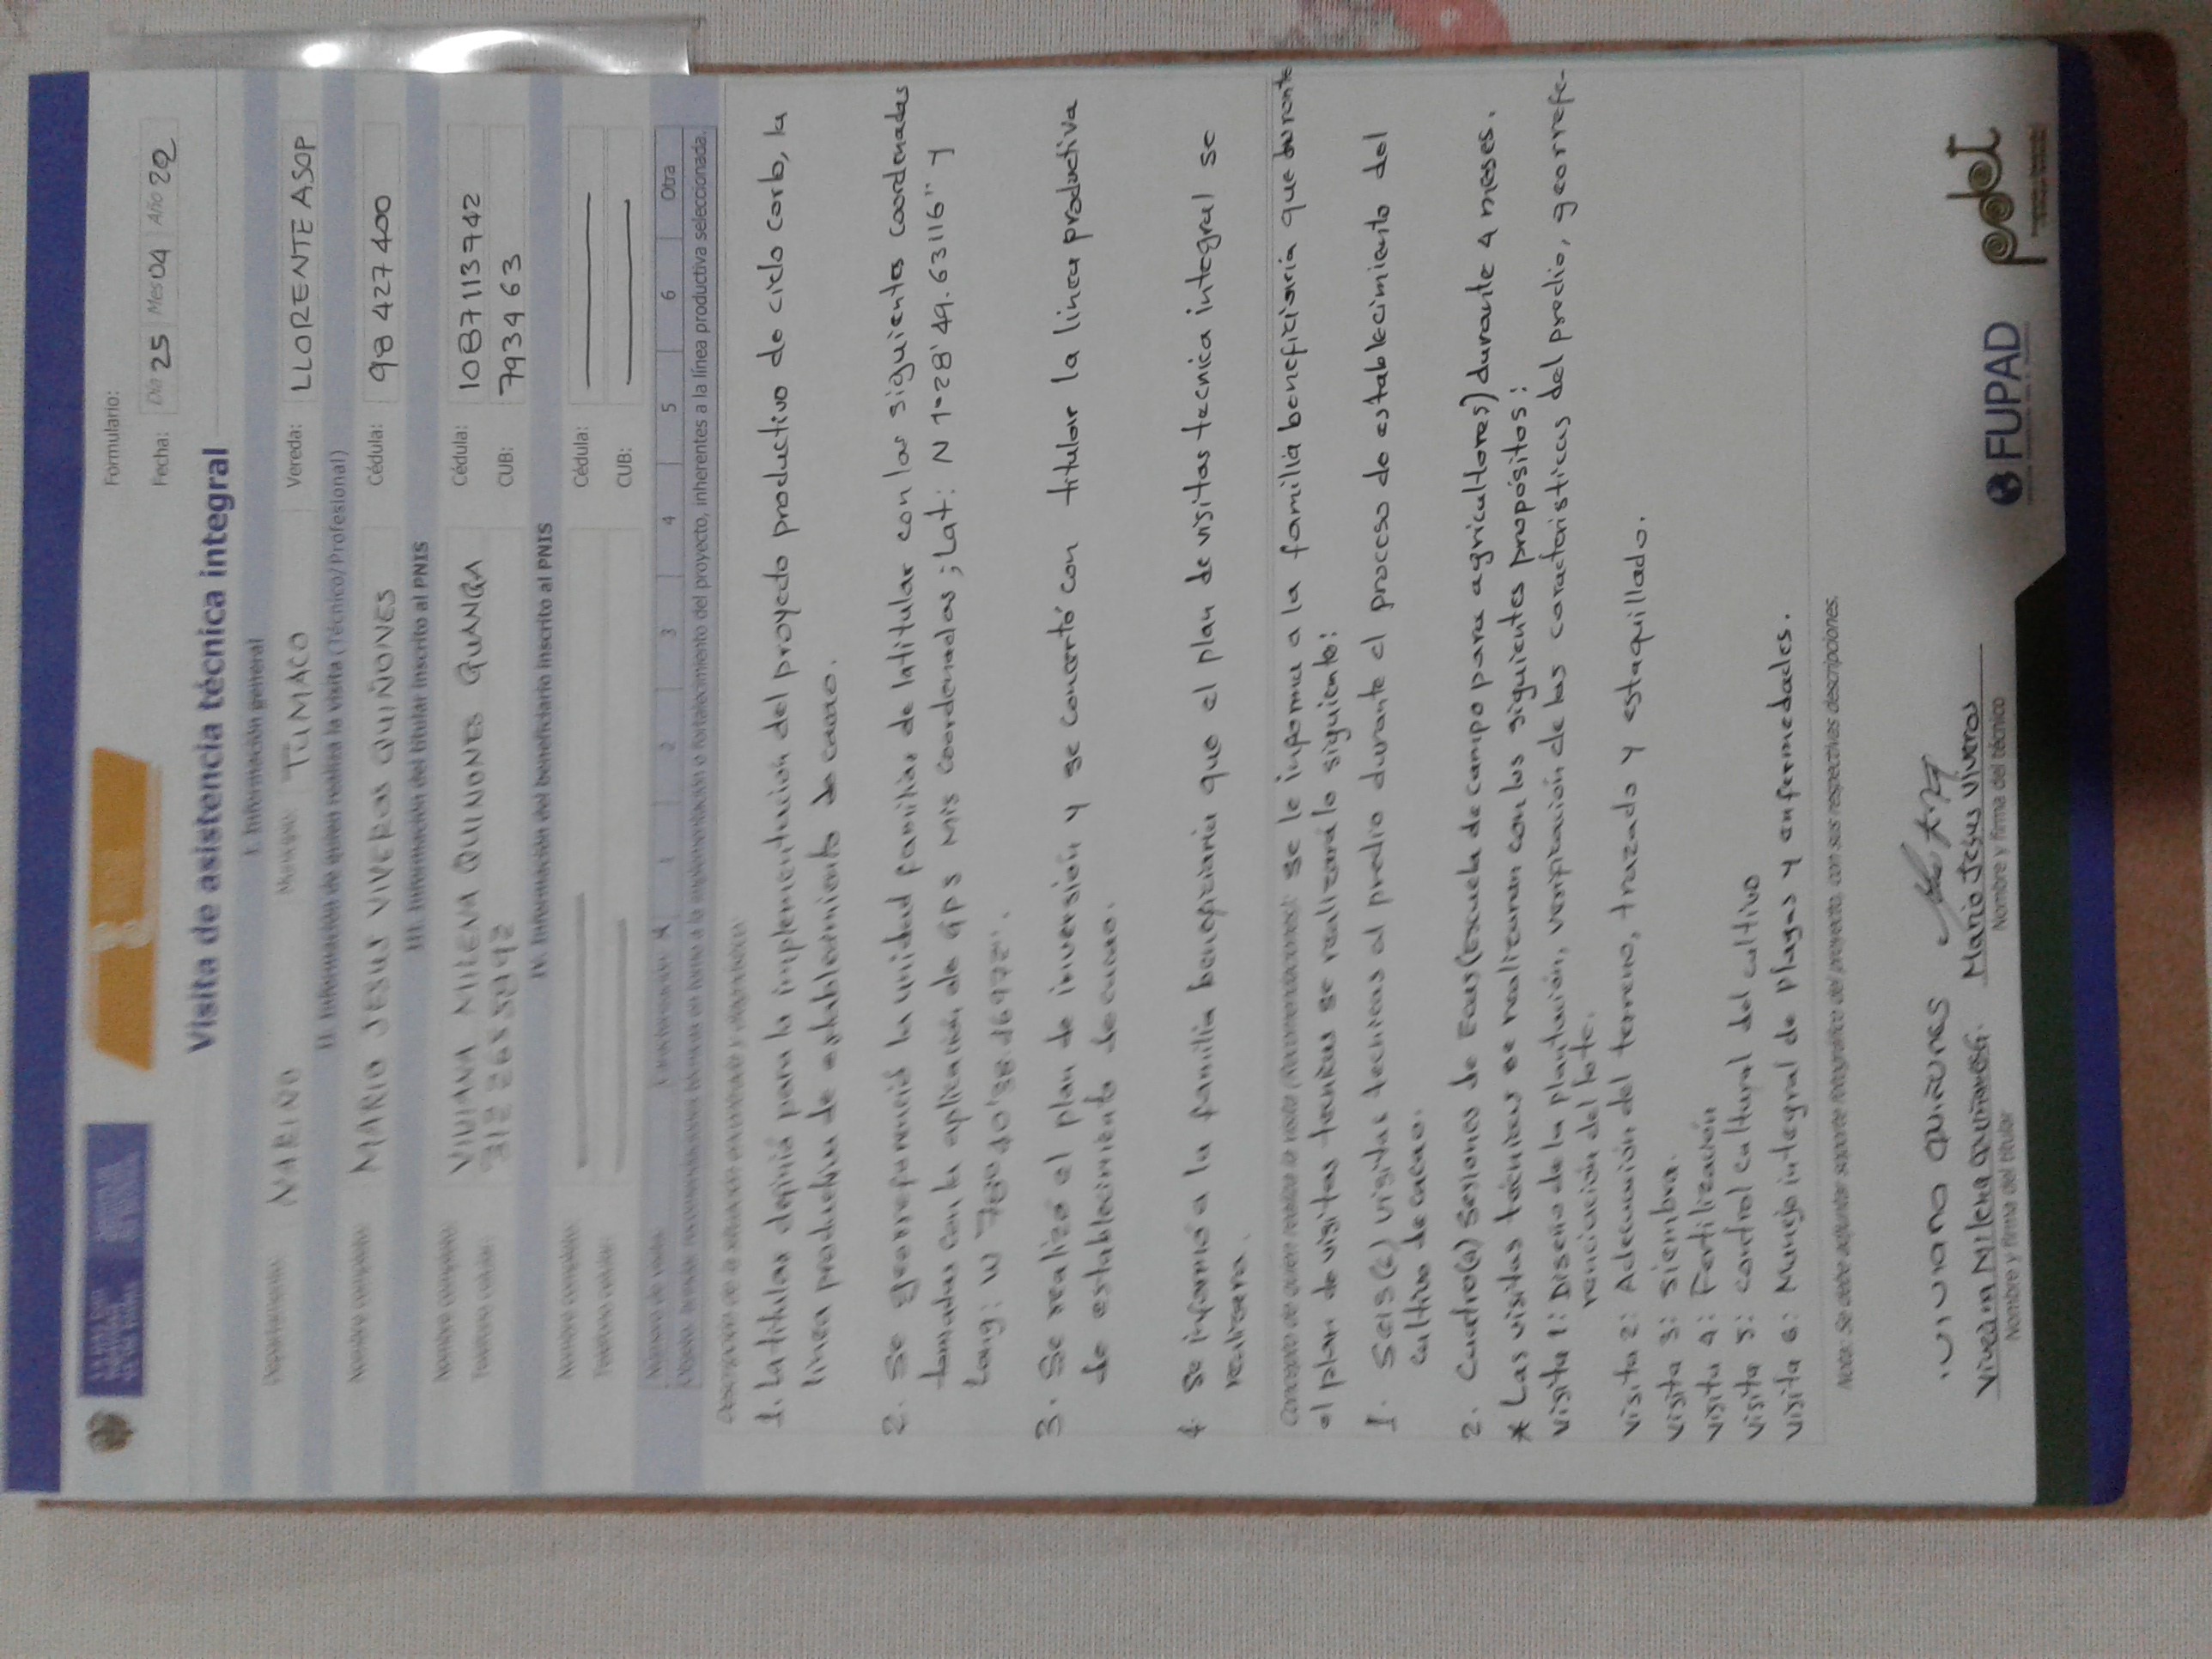 Formulario:
Fecha: Día 25 Mes 04 Año 22
Visita de asistencia técnica integral
I. Información general
Departamento: NARIÑO Municipio: TUMACO Vereda: LLORENTE ASOP
II. Información de quien realiza la visita (Técnico/Profesional)
Nombre completo: MARIO JESUS VIVEROS QUIÑONES Cédula: 98 427 400
III. Información del titular inscrito al PNIS
Nombre completo: VIVIANA MILENA QUIÑONES GUANGA Cédula: 1087113742
Teléfono celular: CUB: 793463
IV. Información del beneficiario inscrito al PNIS
Nombre completo: Cédula:
Teléfono celular: CUB:
Número de visita 1 2 3 4 5 6 Otra
técnicas en torno a la implementación o fortalecimiento del proyecto, inherentes a la línea productiva seleccionada.
Descripción de la situación encontrada y diagnóstico:
1. La titular definió para la implementación del proyecto productivo de ciclo corto, la
linea productiva de establecimiento de cacao.
2. Se georreferenció la unidad familiar de la titular con las siguientes coordenadas
tomadas con la aplicación de GPS Mis coordenadas; Lat: N 1°28'49.63116" Y
Long: W 78°40'58.16972".
3. Se realizó el plan de inversión y se concertó con titular la linea productiva
de establecimiento de cacao.
4. Se informó a la familia beneficiaria que el plan de visitas tecnica integral se
realizara.
Concepto de quien realiza la visita (Recomendaciones): se le informa a la familia beneficiaria que durante
el plan de visitas tecnicas se realizará lo siguiente:
1. Seis (6) visitas tecnicas al predio durante el proceso de establecimiento del
cultivo de cacao.
2. Cuatro (4) sesiones de Ecas (Escuela de campo para agricultores) durante 4 meses.
* Las visitas técnicas se realizaran con los siguientes propósitos:
Visita 1: Diseño de la plantación, verificación de las caracteristicas del predio, georrefe-
renciación del lote.
Visita 2: Adecuación del terreno, trazado y estaquillado.
Visita 3: Siembra.
Visita 4: Fertilización
Visita 5: control cultural del cultivo
Visita 6: Manejo integral de plagas y enfermedades.
Nota: Se debe adjuntar soporte fotográfico del proyecto, con sus respectivas descripciones.
VIVIANA QUIÑONES
Viviana Milena Quiñones G. Mario Jesus Viveros
Nombre y firma del titular Nombre y firma del técnico
FUPAD pdet